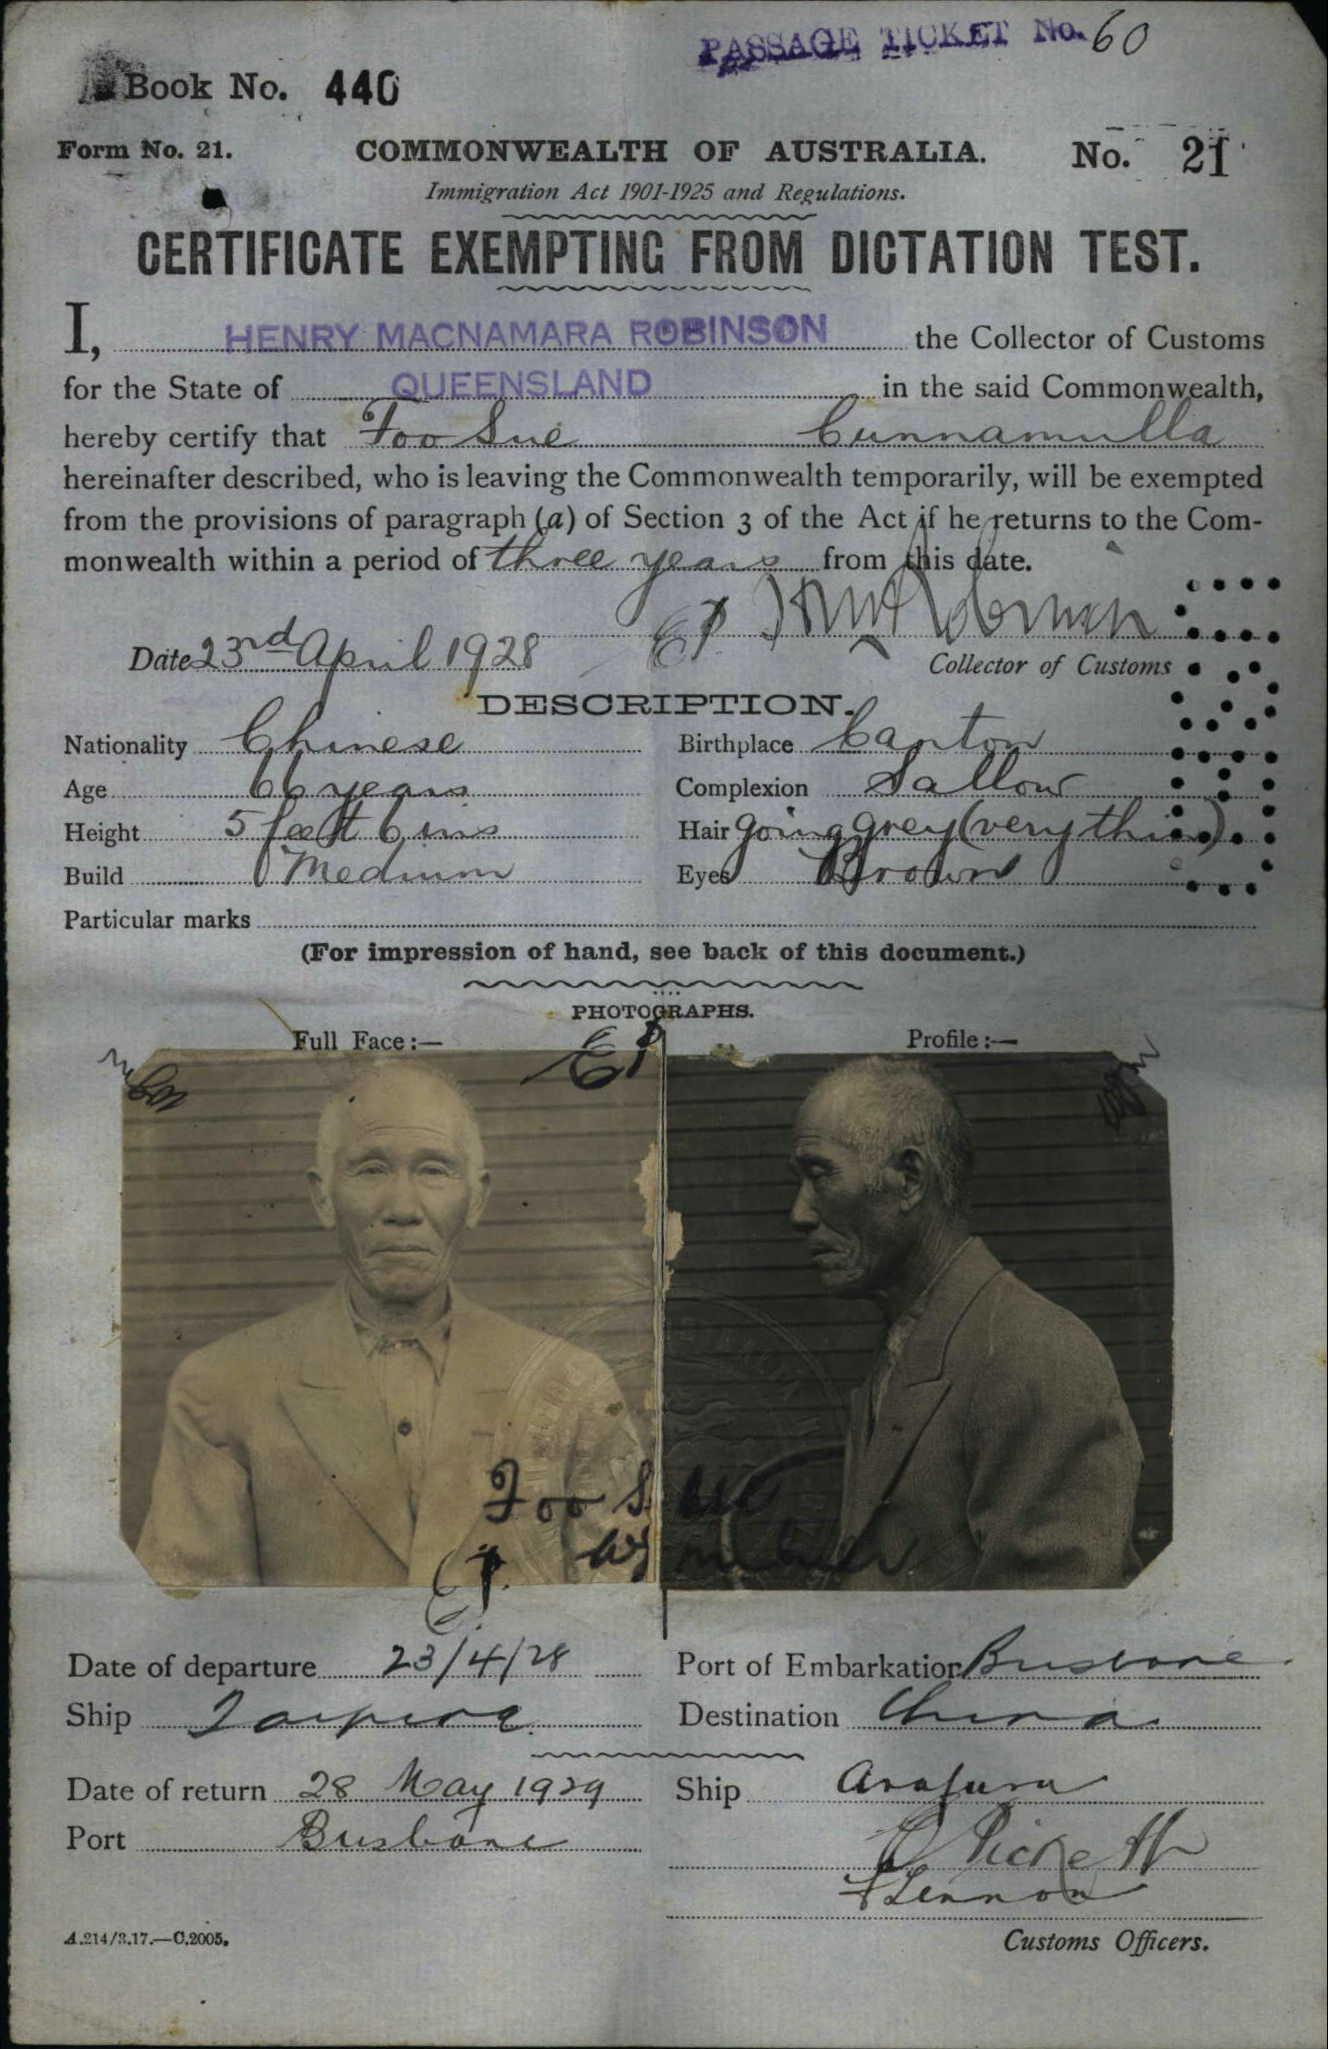 PASSAGE TICKET No. 60
Book No. 440
Form No. 21.
COMMONWEALTH OF AUSTRALIA.
No. 21
Immigration Act 1901-1925 and Regulations.
CERTIFICATE EXEMPTING FROM DICTATION TEST.
I, HENRY MACNAMARA ROBINSON the Collector of Customs
for the State of QUEENSLAND in the said Commonwealth,
hereby certify that Foo Sue Cunnamulla
hereinafter described, who is leaving the Commonwealth temporarily, will be exempted
from the provisions of paragraph (a) of Section 3 of the Act if he returns to the Com-
monwealth within a period of three years from this date.
Date 23rd April 1928
Collector of Customs
DESCRIPTION.
Nationality Chinese Birthplace Canton
Age 66 years Complexion Sallow
Height 5 feet 6 ins Hair going grey (very thin)
Build Medium Eyes Brown
Particular marks
(For impression of hand, see back of this document.)
PHOTOGRAPHS.
Full Face:— Profile:—
Foo Sue
Date of departure 23/4/28 Port of Embarkation Brisbane
Ship Taiping Destination China
Date of return 28 May 1929 Ship Arafura
Port Brisbane
Pickett
Lennon
A.214/3.17.—C.2005.
Customs Officers.